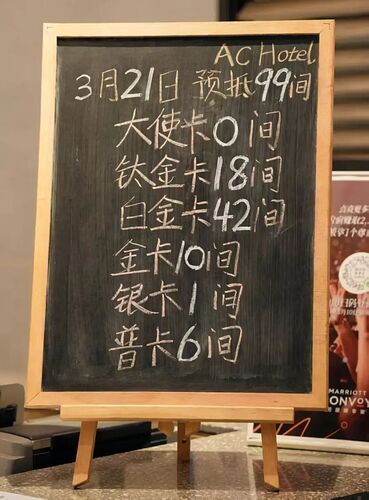 AC Hotel
3月21日 预抵99间
大使卡0间
钛金卡18间
白金卡42间
金卡10间
银卡1间
普卡6间
MARRIOTT
BONVOY